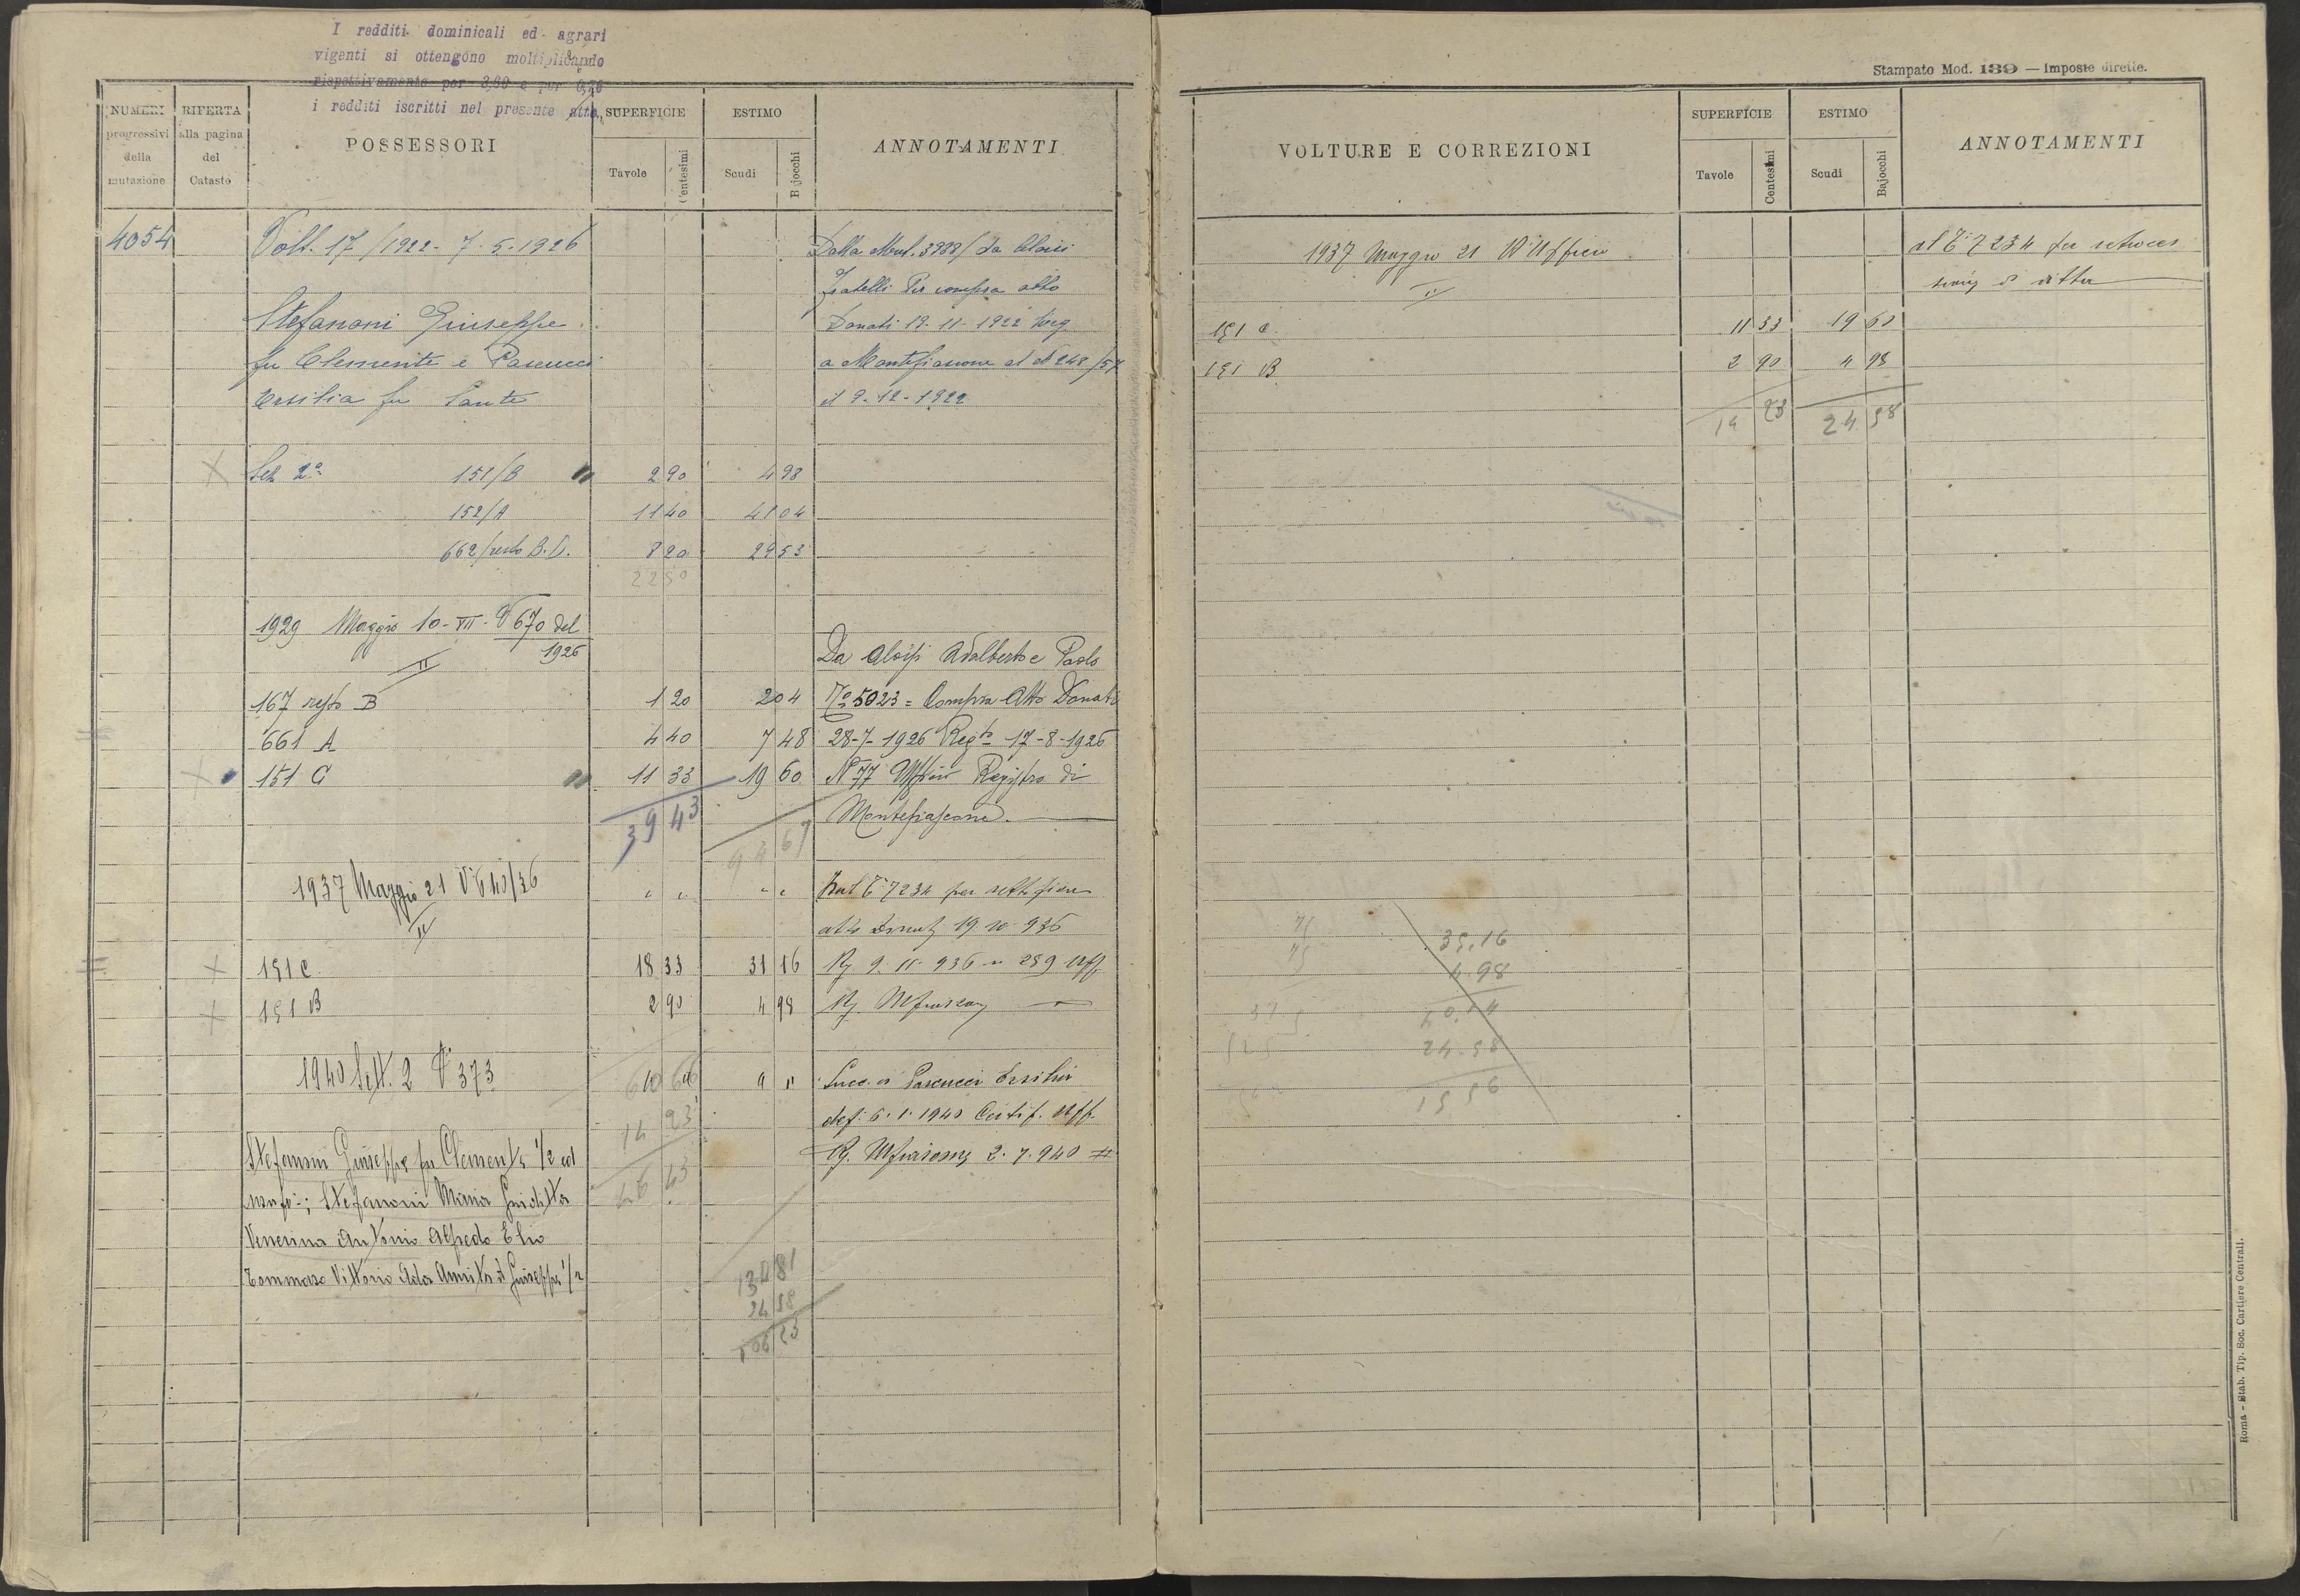 I redditi dominicali ed agrari
vigenti si ottengono moltiplicando
rispettivamente per 3,60 e per
i redditi iscritti nel presente atto.
NUMERI progressivi della mutazione
RIFERTA alla pagina del Catasto
POSSESSORI
SUPERFICIE
Tavole
Centesimi
ESTIMO
Scudi
Bajocchi
ANNOTAMENTI
4054 Volt. 17/1922 - 7.5.1926 Dalla Mut. 3988/ da Aloisi
fratelli Per compra atto
Stefanoni Giuseppe Donati 19-11-1922 Reg.
fu Clemente e Pascucci a Montefiascone al N 248/57
Ersilia fu Sante il 9-12-1922
Sez 2a 151/B 2 90 4 98
152/A 11 40 41 04
662/resto B.D. 8 20 29 53
22 50
1929 Maggio 10-VII- V 670 del
1926
II Da Aloisi Adalberto e Paolo
167 resto B 1 20 2 04 No 5023 = Compra Atto Donati
661 A 4 40 7 48 28-7-1926 Regto 17-8-1926
151 C 11 33 19 60 N 77 Ufficio Registro di
39 43 Montefiascone.
94 67
1937 Maggio 21 V 640/36 " " " " Dal 7234 per rettifica
II atto Donati 19.10.936
151 C 18 33 31 16 Rg 9.11.936 n 289 Uff
151 B 2 90 4 98 Rg. Mfiascone
1940 Sett. 2 V 373 60 66 " " Succ. di Pascucci Ersilia
14 23 def. 6.1.1940 Certif. Uff.
Stefanoni Giuseppe fu Clemente 1/2 ed Rg. Mfiascone 2.7.940
usuf.; Stefanoni Maria Giuditta 46 43
Venerina Antonio Alfredo Elio
Tommaso Vittorio Ada Annita di Giuseppe 1/2
130 81
24 58
106 23
Stampato Mod. 139 — Imposte dirette.
VOLTURE E CORREZIONI
SUPERFICIE
Tavole
Centesimi
ESTIMO
Scudi
Bajocchi
ANNOTAMENTI
1937 Maggio 21 V Ufficio al 7234 per retroces
II sione di ditta
151 C. 11 33 19 60
151 B 2 90 4 98
14 23 24 58
35.16
4.98
40.14
24.58
15 56
Roma - Stab. Tip. Soc. Cartiere Centrali.